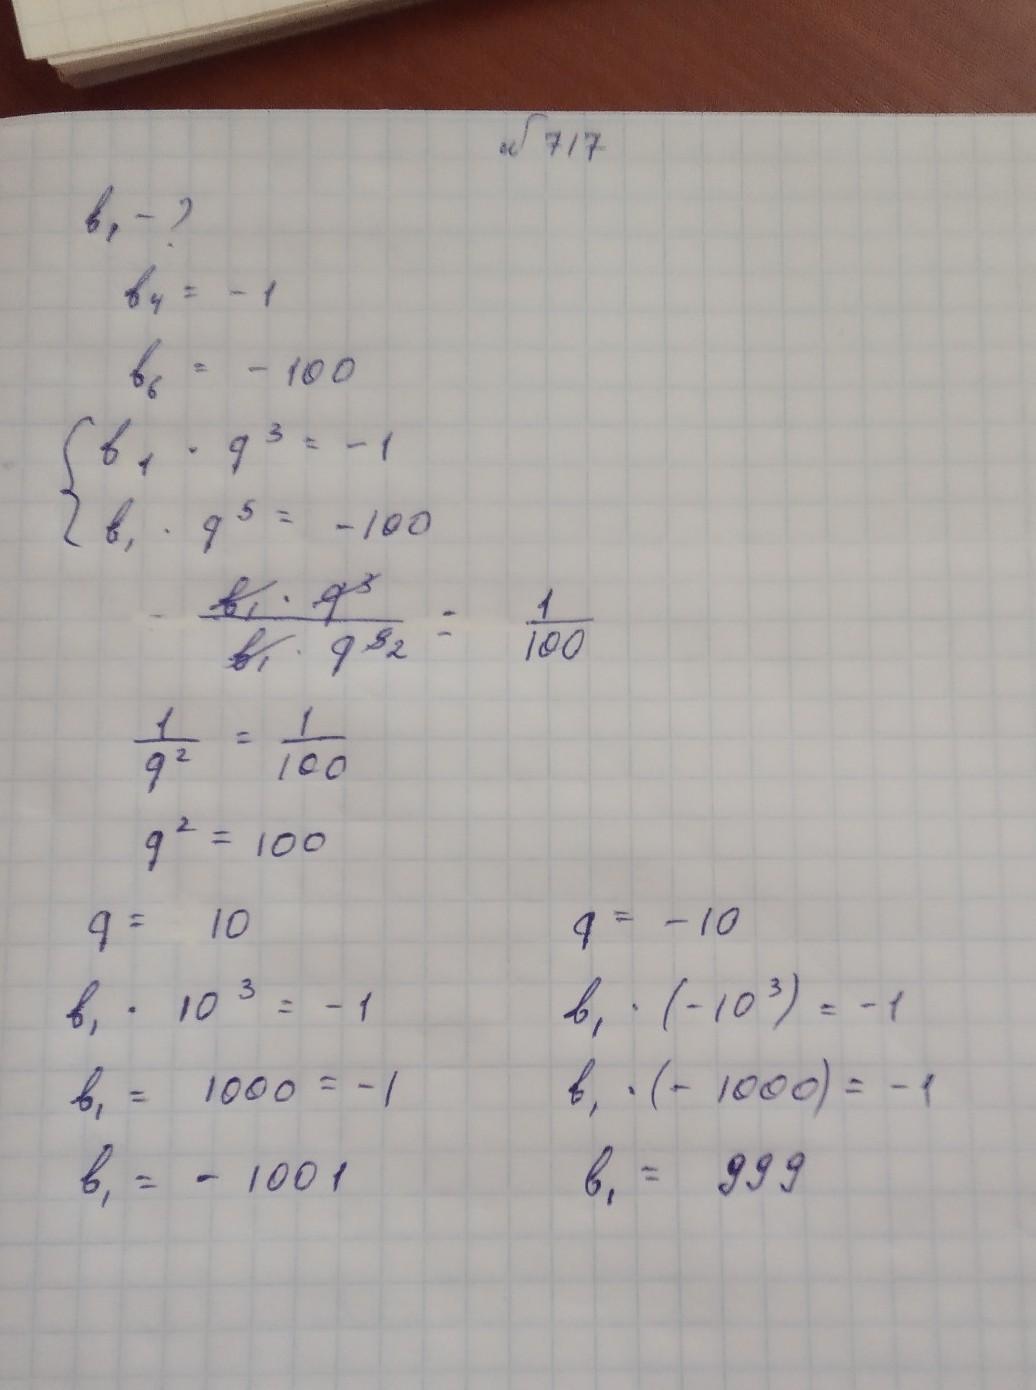 №717
b₁ - ?
b₄ = -1
b₆ = -100
{ b₁ · q³ = -1
b₁ · q⁵ = -100
b₁ · q³ / b₁ · q⁵ ² = 1/100
1/q² = 1/100
q² = 100
q = 10 q = -10
b₁ · 10³ = -1 b₁ · (-10³) = -1
b₁ = 1000 = -1 b₁ · (-1000) = -1
b₁ = - 1001 b₁ = 999